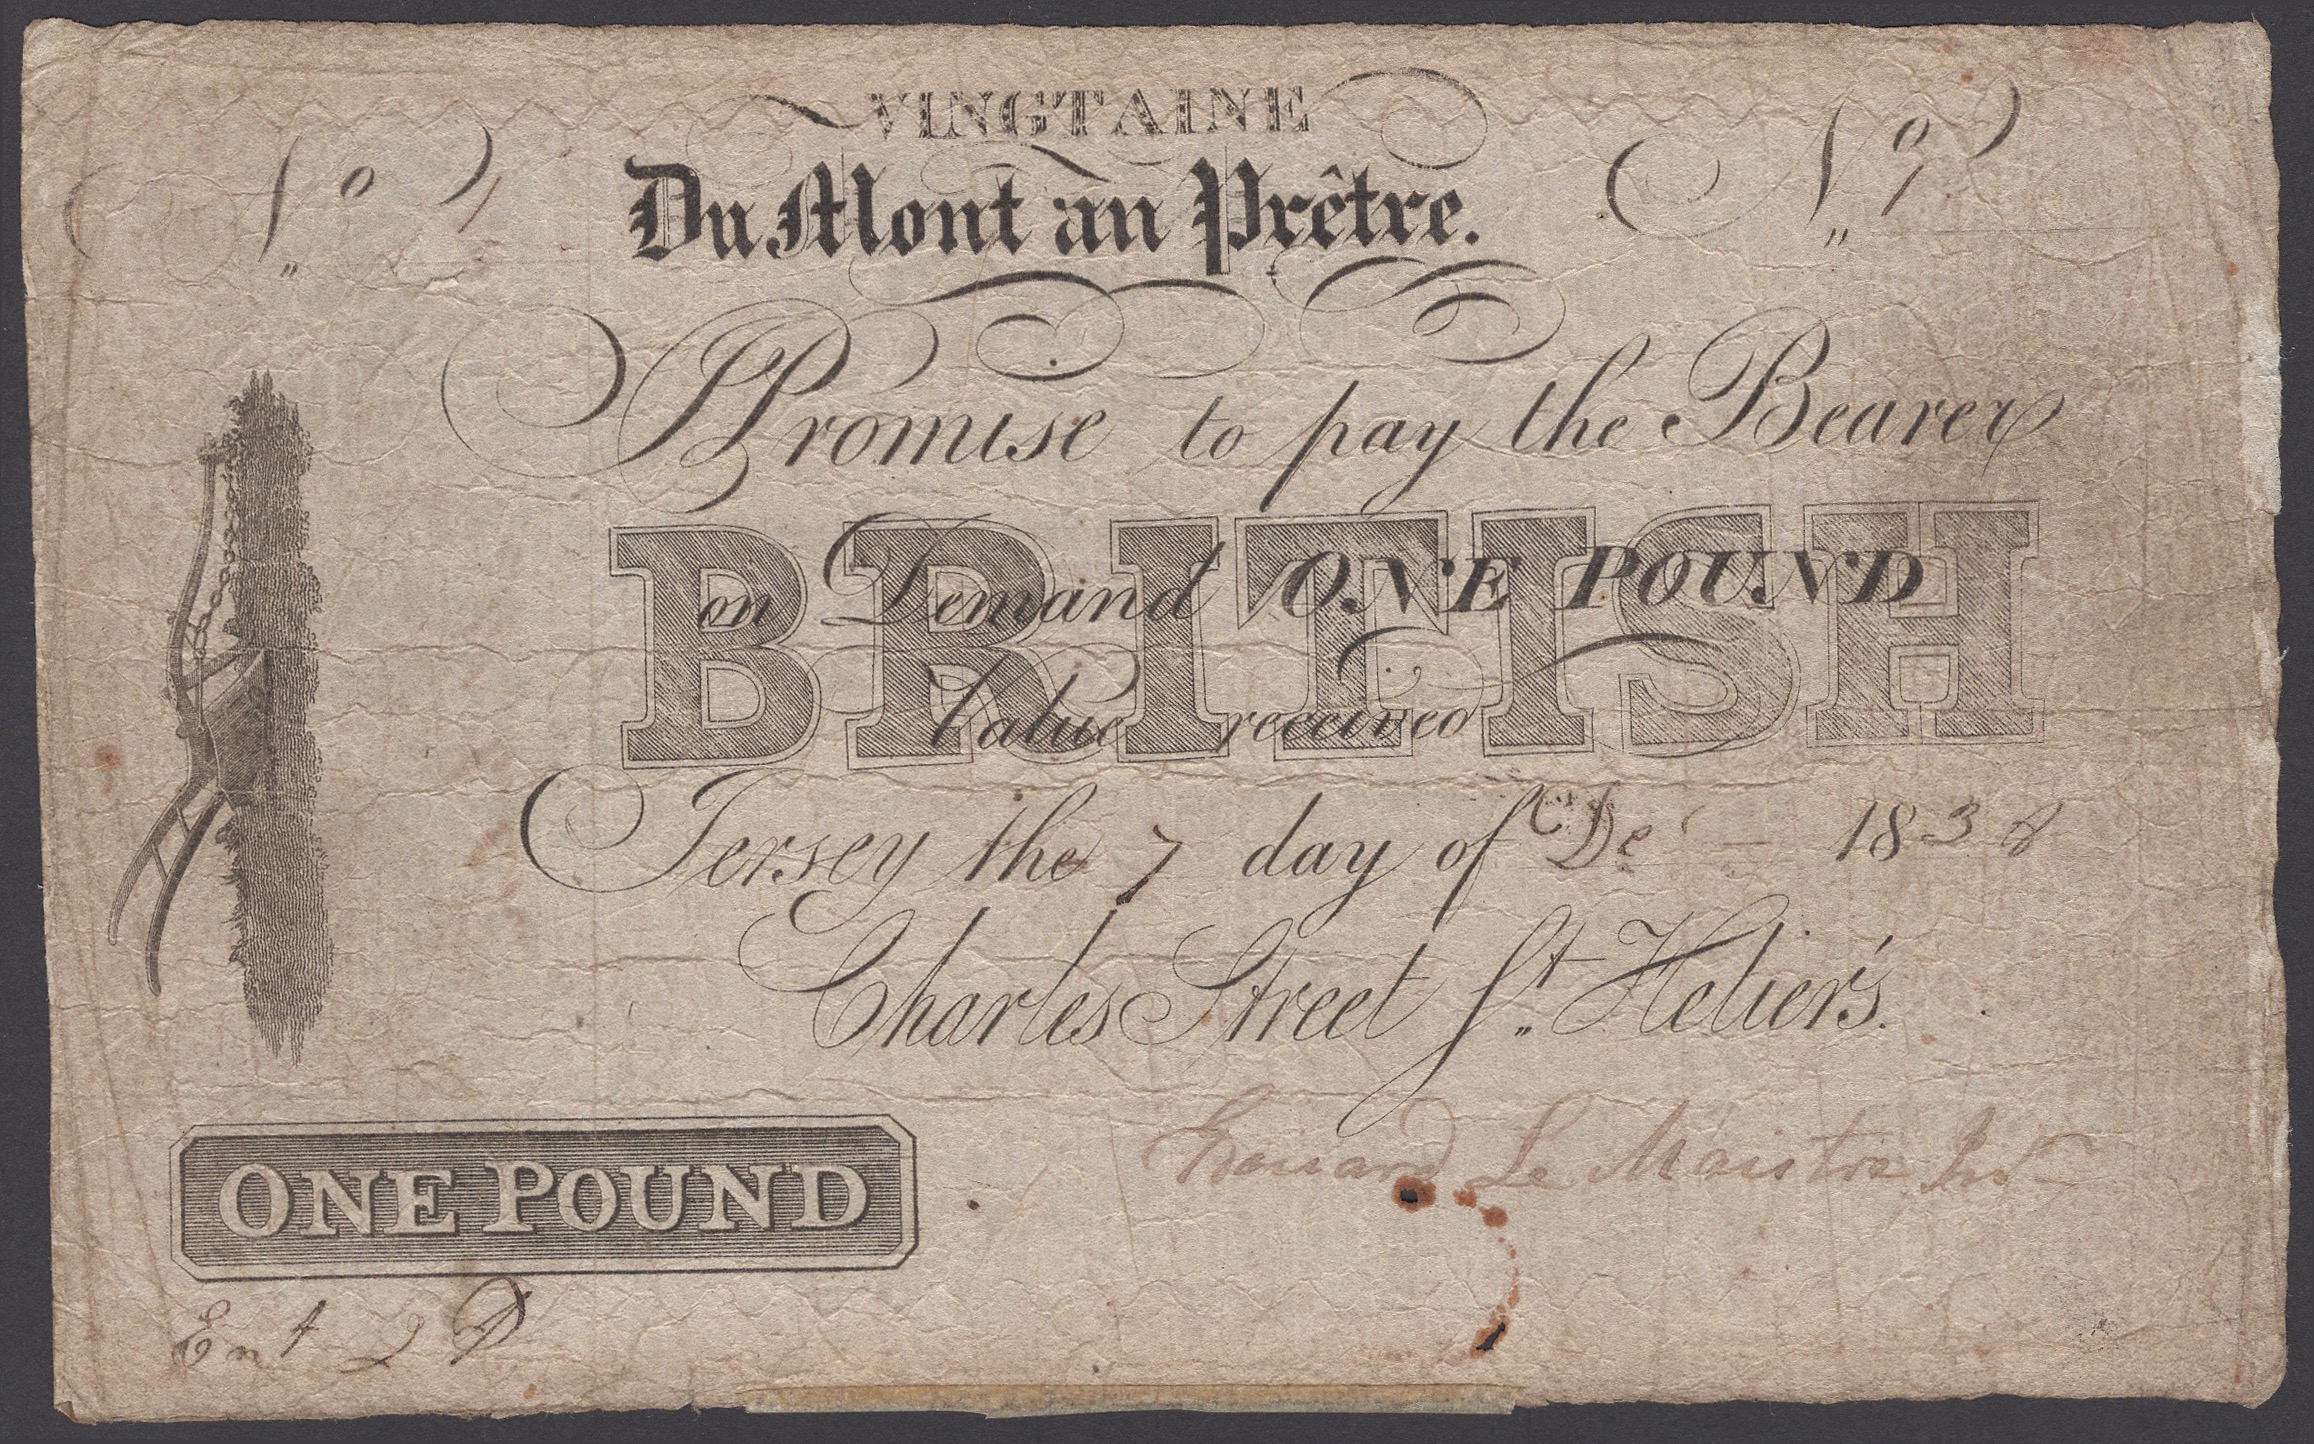 VINGTAINE
No 1
Du Mont au Prêtre.
No 1
Promise to pay the Bearer
BRITISH
on Demand ONE POUND
Value received
Jersey the 7 day of De 1838
Charles Street St Helier's.
Edouard Le Maistre Jnr
ONE POUND
Ent